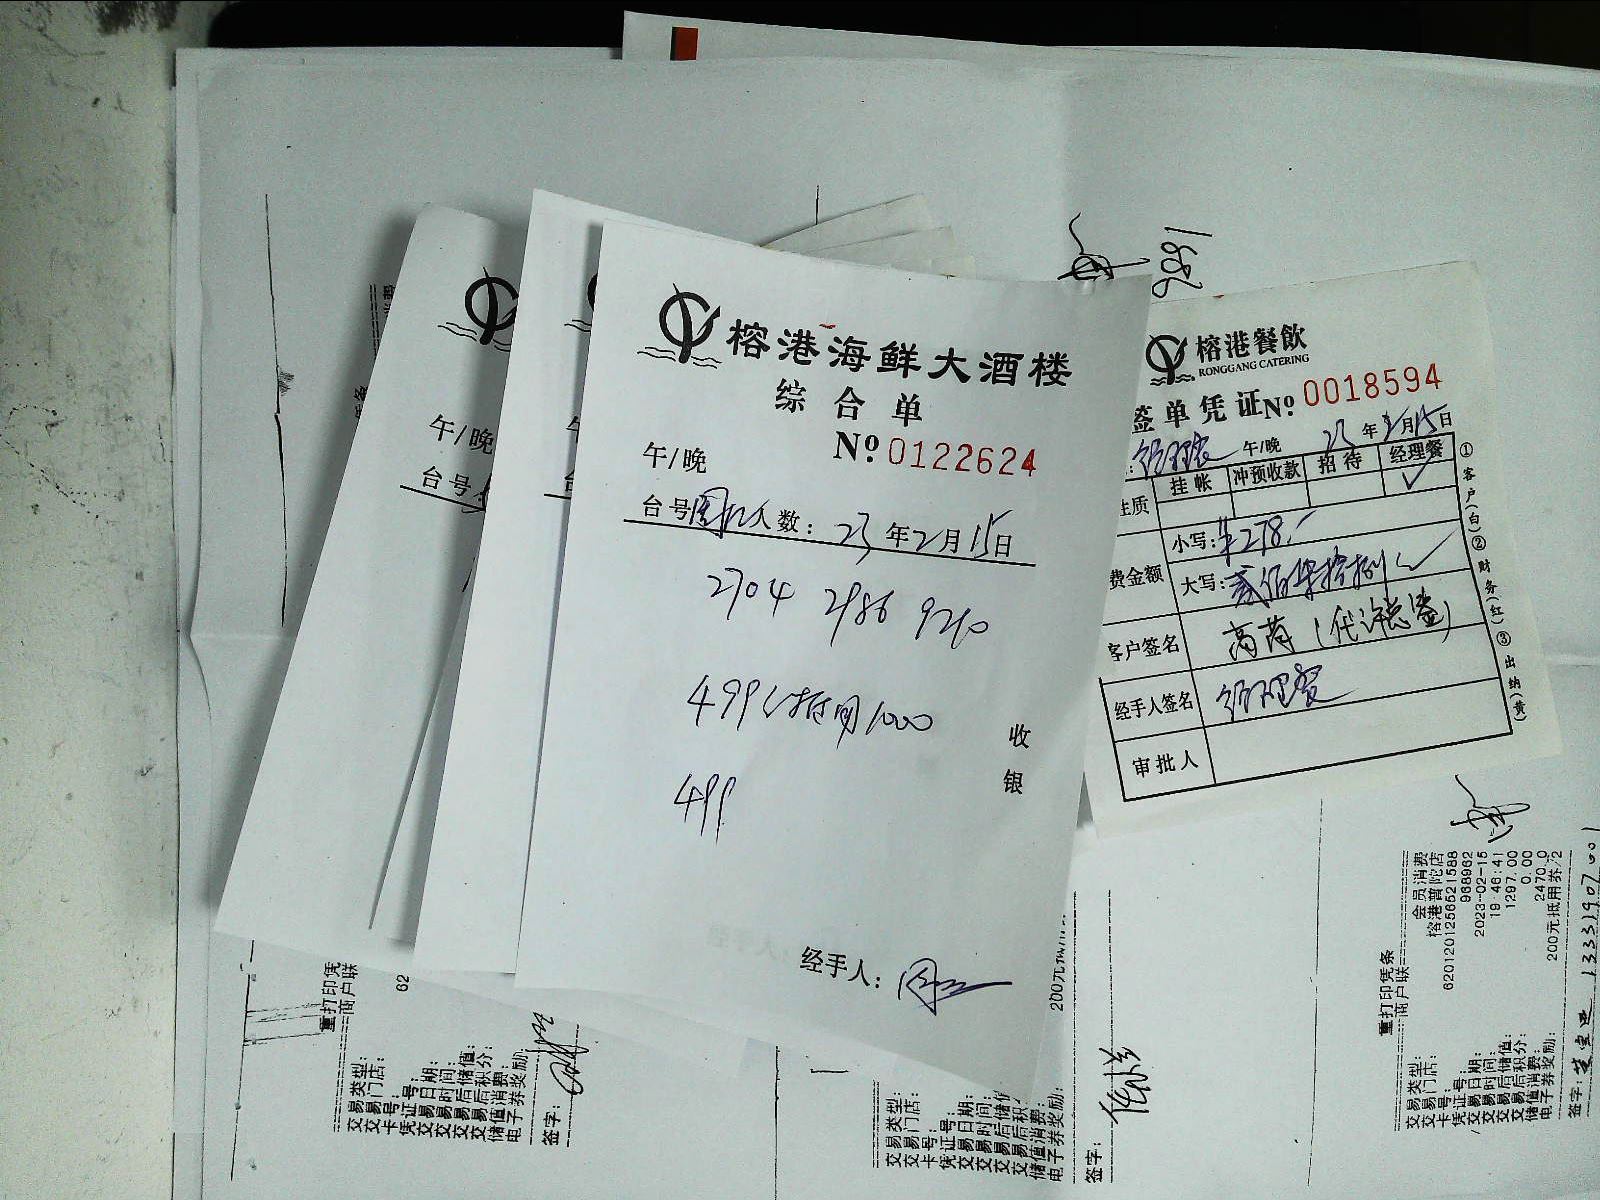 榕港海鲜大酒楼
综合单
午/晚
№ 0122624
台号 人数: 23年2月15日
2704 2986 920
499 抵用1000
499
收银
经手人:
榕港餐飲
RONGGANG CATERING
签单凭证№ 0018594
经理餐 午/晚 23年2月15日
性质 挂帐 冲预收款 招待 经理餐
✓
费金额 小写: ¥278.-
大写: 贰佰柒拾捌
客户签名 高 (代许总签)
经手人签名 经理餐
审批人
①客户(白)②财务(红)③出纳(黄)
午/晚
台号
午
台
1896
重打印凭条
商户联
交易类型: 会员消费
交易门店: 榕港普陀店
卡号: 6201201256521588
凭证号: 968962
交易日期: 2023-02-15
交易时间: 19:46:41
交易后储值: 1297.00
交易后积分: 0.00
储值消费: 2470.0
电子券奖励: 200元抵用券/2
签字: 13331907001
重打印凭
商户联
交易类型:
交易门店:
卡号: 62
凭证号:
交易日期:
交易时间:
交易后储值:
交易后积分:
储值消费:
电子券奖励:
签字:
交易类型:
交易门店:
卡号:
凭证号:
交易日期:
交易时间:
交易后储值
交易后积
储值消费:
电子券奖励: 200元
签字: